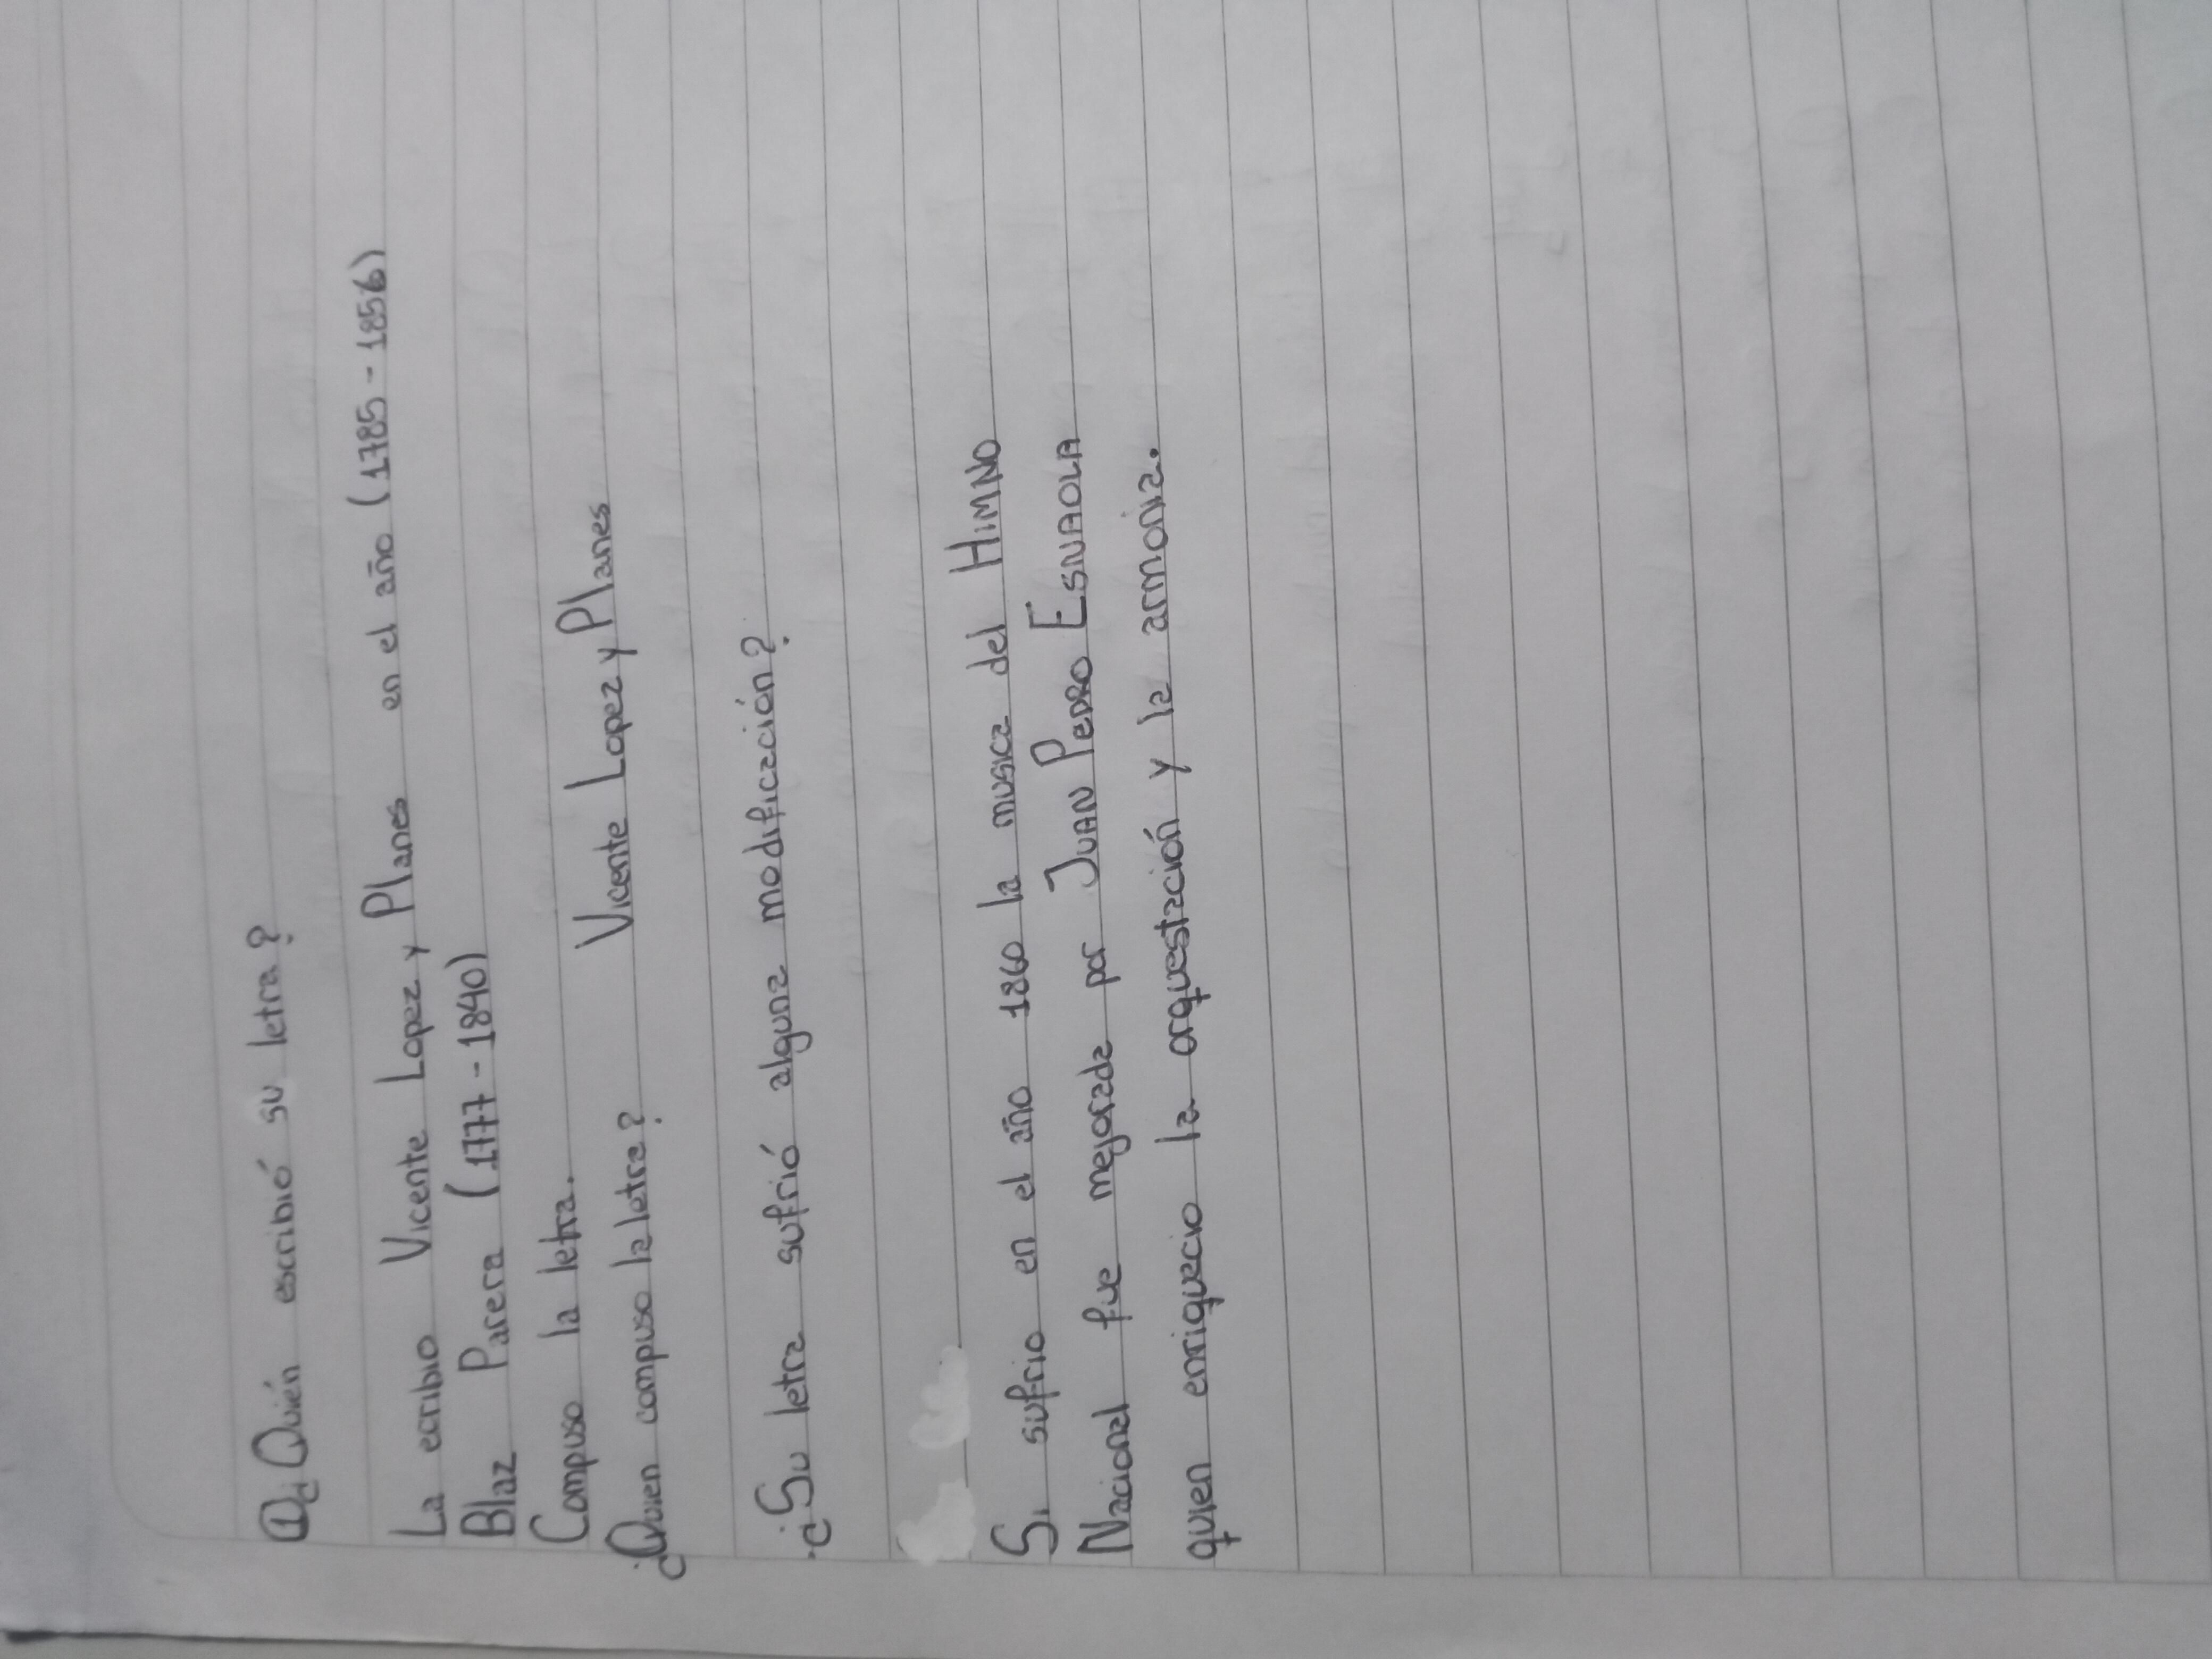 ① ¿Quién escribió su letra?
La ecribio Vicente Lopez y Planes en el año (1785 - 1856)
Blaz Parera (1777 - 1840)
Compuso la letra.
¿Quien compuso la letra? Vicente Lopez y Planes
¿Su letra sufrió alguna modificación?
Si sufrio en el año 1860 la musica del HIMNO
Nacional fue mejorada por JUAN PEDRO ESNAOLA
quien enriquecio la orquestación y la armonia.